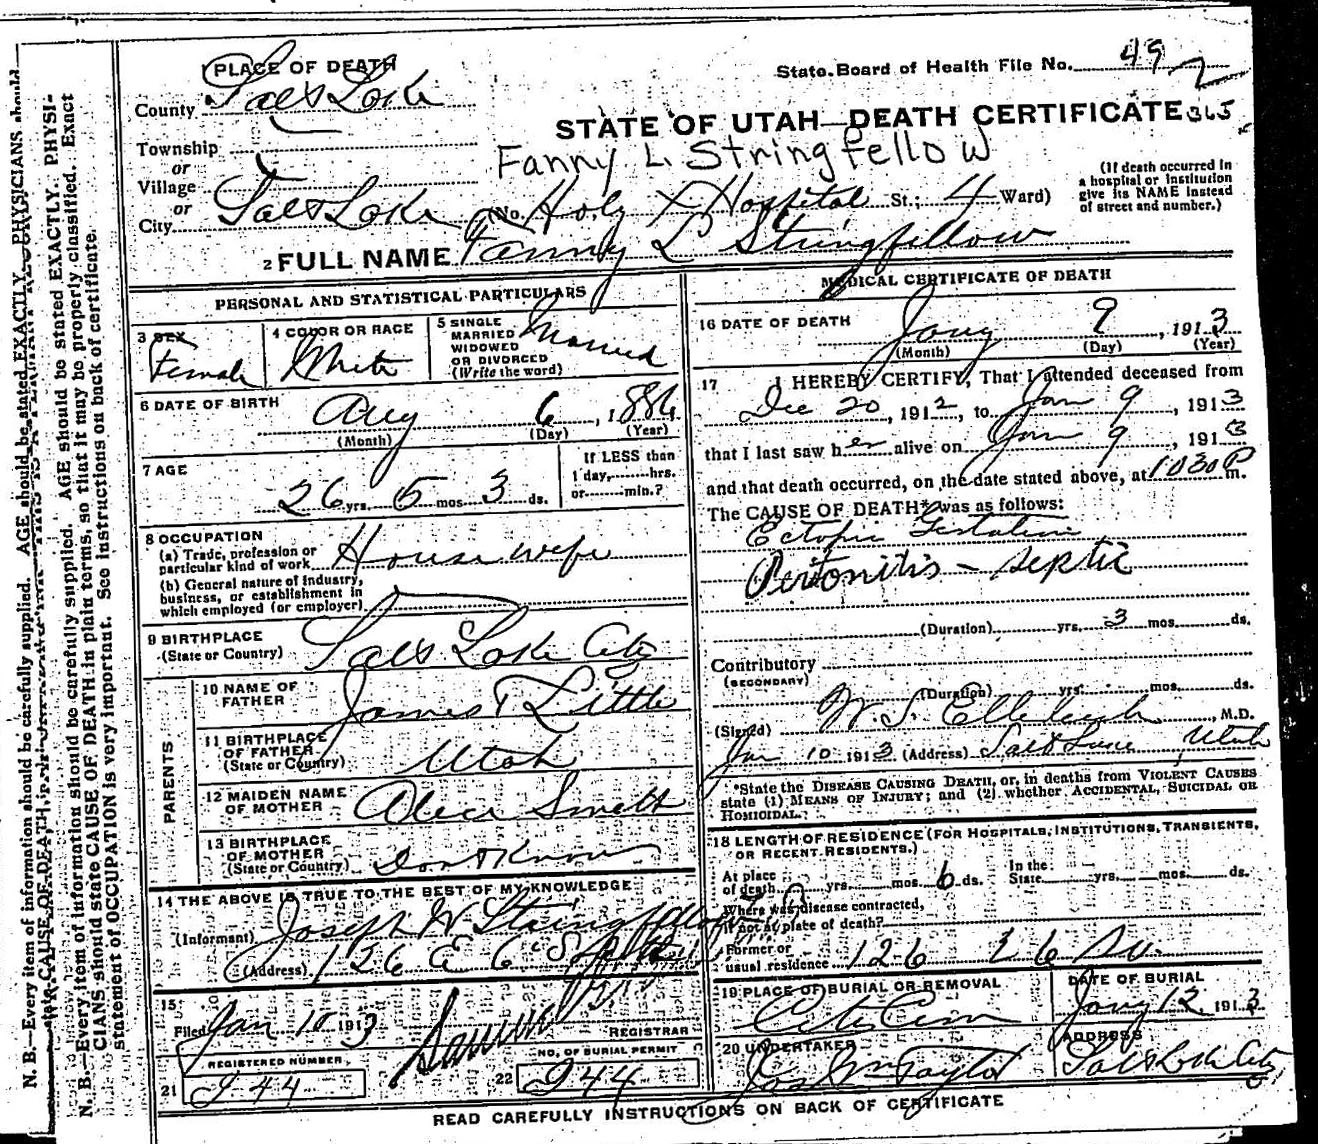 1 PLACE OF DEATH
State Board of Health File No. 49
County Salt Lake
STATE OF UTAH—DEATH CERTIFICATE 365
Township
or
Village
or
City Salt Lake
Fanny L. Stringfellow
(No. Holy X Hospital St.; 4 Ward)
(If death occurred in
a hospital or institution
give its NAME instead
of street and number.)
2 FULL NAME Fanny L Stringfellow
PERSONAL AND STATISTICAL PARTICULARS
3 SEX
Female
4 COLOR OR RACE
White
5 SINGLE
MARRIED
WIDOWED
OR DIVORCED
(Write the word)
Married
6 DATE OF BIRTH
Aug 6, 1886
(Month) (Day) (Year)
7 AGE
26 yrs. 5 mos. 3 ds.
If LESS than
1 day, hrs.
or min.?
8 OCCUPATION
(a) Trade, profession or
particular kind of work House wife
(b) General nature of industry,
business, or establishment in
which employed (or employer)
9 BIRTHPLACE
(State or Country) Salt Lake City
PARENTS
10 NAME OF
FATHER James T Little
11 BIRTHPLACE
OF FATHER
(State or Country) Utah
12 MAIDEN NAME
OF MOTHER Alice Smith
13 BIRTHPLACE
OF MOTHER
(State or Country) Don't Know
14 THE ABOVE IS TRUE TO THE BEST OF MY KNOWLEDGE
(Informant) Joseph W Stringfellow
(Address) 126 E 6 So
15
Filed Jan 10 1913
REGISTRAR
REGISTERED NUMBER
21 J44
NO. OF BURIAL PERMIT
22 J44
MEDICAL CERTIFICATE OF DEATH
16 DATE OF DEATH
Jany 9, 1913
(Month) (Day) (Year)
17 I HEREBY CERTIFY, That I attended deceased from
Dec 20, 1912, to Jan 9, 1913
that I last saw her alive on Jan 9, 1913
and that death occurred, on the date stated above, at 1030 P m.
The CAUSE OF DEATH* was as follows:
Ectopic Gestation
Peritonitis - septic
(Duration) yrs. 3 mos. ds.
Contributory
(SECONDARY)
(Duration) yrs. mos. ds.
(Signed) W. S., M.D.
Jan 10 1913 (Address) Salt Lake, Utah
*State the DISEASE CAUSING DEATH, or, in deaths from VIOLENT CAUSES
state (1) MEANS OF INJURY; and (2) whether ACCIDENTAL, SUICIDAL OR
HOMICIDAL.
18 LENGTH OF RESIDENCE (FOR HOSPITALS, INSTITUTIONS, TRANSIENTS,
OR RECENT RESIDENTS.)
At place
of death yrs. mos. 6 ds.
In the
State yrs. mos. ds.
Where was disease contracted,
if not at place of death?
Former or
usual residence 126 E 6 So.
19 PLACE OF BURIAL OR REMOVAL
City Cem
DATE OF BURIAL
Jany 12, 1913
20 UNDERTAKER
Jos Wm Taylor
ADDRESS
Salt Lake City
READ CAREFULLY INSTRUCTIONS ON BACK OF CERTIFICATE
N. B.—Every item of information should be carefully supplied. AGE should be stated EXACTLY. PHYSICIANS should
N. B.—Every item of information should be carefully supplied. AGE should be stated EXACTLY. PHYSI-
CIANS should state CAUSE OF DEATH in plain terms, so that it may be properly classified. Exact
statement of OCCUPATION is very important. See instructions on back of certificate.